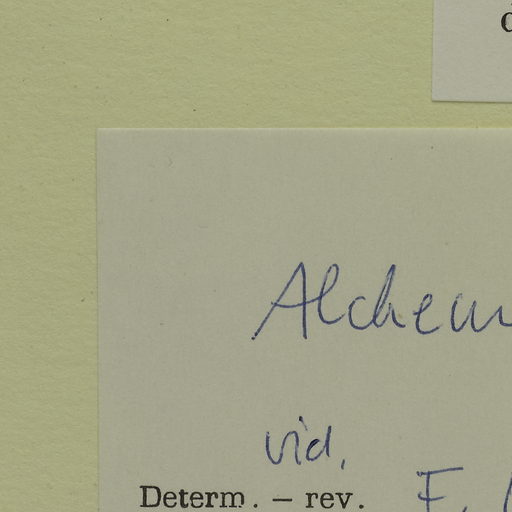 d
Alchem
vid.
Determ. — rev. F.